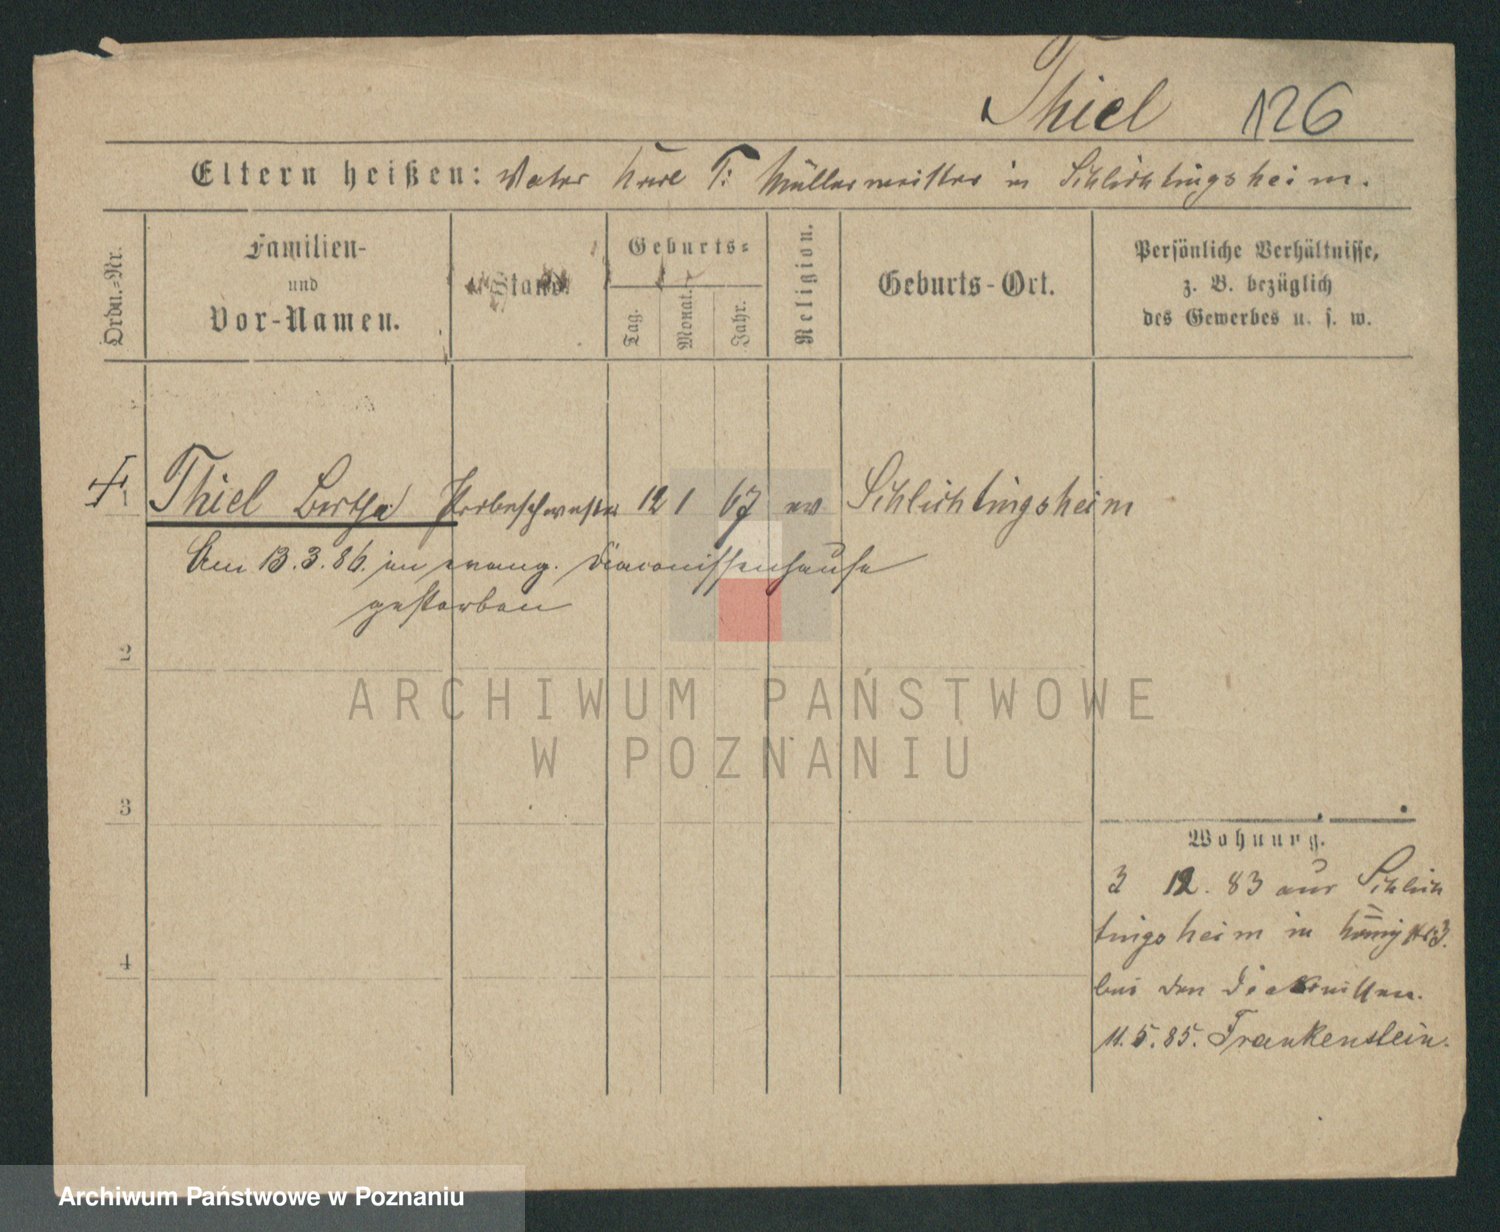 Thiel 126
Eltern heißen: Vater Karl T: Müllermeister in Schlichtingsheim.
Ordn.-Nr.
Familien-
und
Vor-Namen.
Stand.
Geburts-
Tag.
Monat.
Jahr.
Religion.
Geburts-Ort.
Persönliche Verhältnisse,
z. B. bezüglich
des Gewerbes u. s. w.
1 Thiel Bertha Probeschwester 12 1 67 ev Schlichtingsheim
Am 13.3.86. im evang. Diaconissenhause
gestorben
2
3
4
Wohnung.
3 12. 83 aus Schlich
tingsheim in
bei den
11.5.85. Frankenstein.
ARCHIWUM PAŃSTWOWE
W POZNANIU
Archiwum Państwowe w Poznaniu